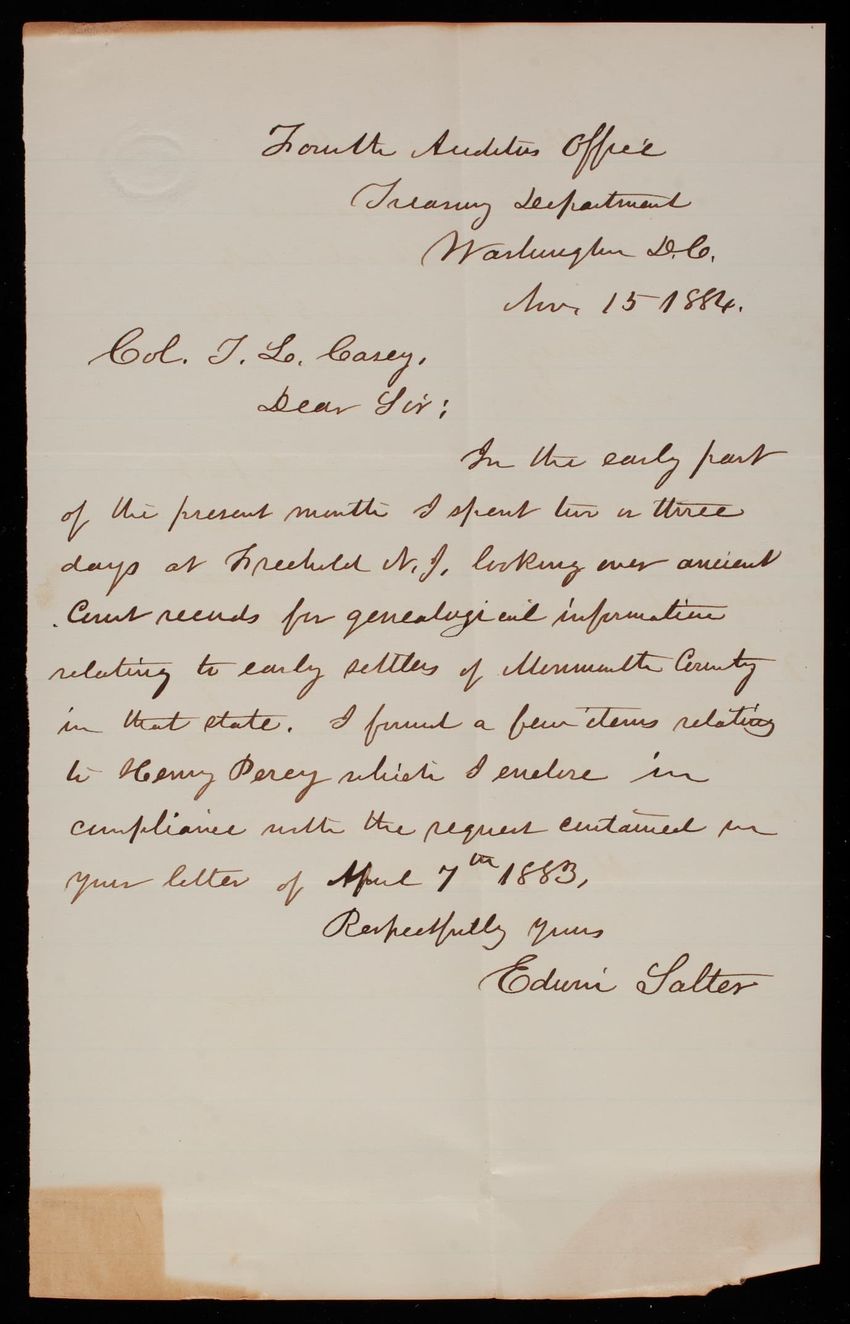 Fourth Auditors Office
Treasury Department
Washington D.C.
Nov. 15 1884.
Col. T. L. Casey,
Dear Sir;
In the early part
of the present month I spent two or three
days at Freehold N.J. looking over ancient
Court records for genealogical information
relating to early settlers of Monmouth County
in that state. I found a few items relating
to Henry Percy which I enclose in
compliance with the request contained in
your letter of April 7th 1883,
Respectfully yours
Edwin Salter